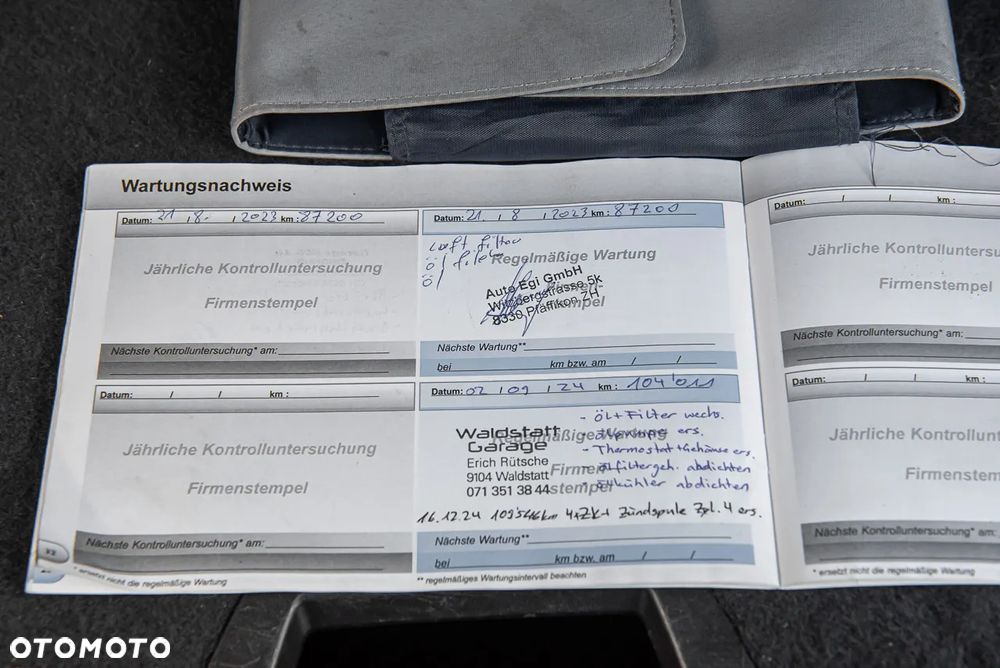 Wartungsnachweis
Datum: 21 . 8 . 2023 km : 87200
Jährliche Kontrolluntersuchung
Firmenstempel
Nächste Kontrolluntersuchung* am:
Datum: 21 . 8 . 2023 km : 87200
Luft filter
öl filter
öl
Regelmäßige Wartung
Auto Egi GmbH
Witzbergstrasse 5k
8330 Pfäffikon ZH
Nächste Wartung**
bei km bzw. am / /
Datum: / / km :
Jährliche Kontrolluntersuchung
Firmenstempel
Nächste Kontrolluntersuchung* am:
Datum: 02 / 09 / 24 km : 104'011
- Öl+Filter wechs.
ers.
- Thermostat+Gehäuse ers.
- Ölfiltergeh. abdichten
- Ölkühler abdichten
Regelmäßige Wartung
Firmenstempel
Waldstatt
Garage
Erich Rütsche
9104 Waldstatt
071 351 38 44
16.12.24 109546km 4xZK+ Zündspule Zyl. 4 ers.
Nächste Wartung**
bei km bzw. am / /
* ersetzt nicht die regelmäßige Wartung
** regelmäßiges Wartungsintervall beachten
Datum: / / km :
Jährliche Kontrollunters
Firmenstempel
Nächste Kontrolluntersuchung* am:
Datum: / / km :
Jährliche Kontrollunt
Firmenstem
Nächste Kontrolluntersuchung* am:
* ersetzt nicht die regelmäßige Wartung
OTOMOTO